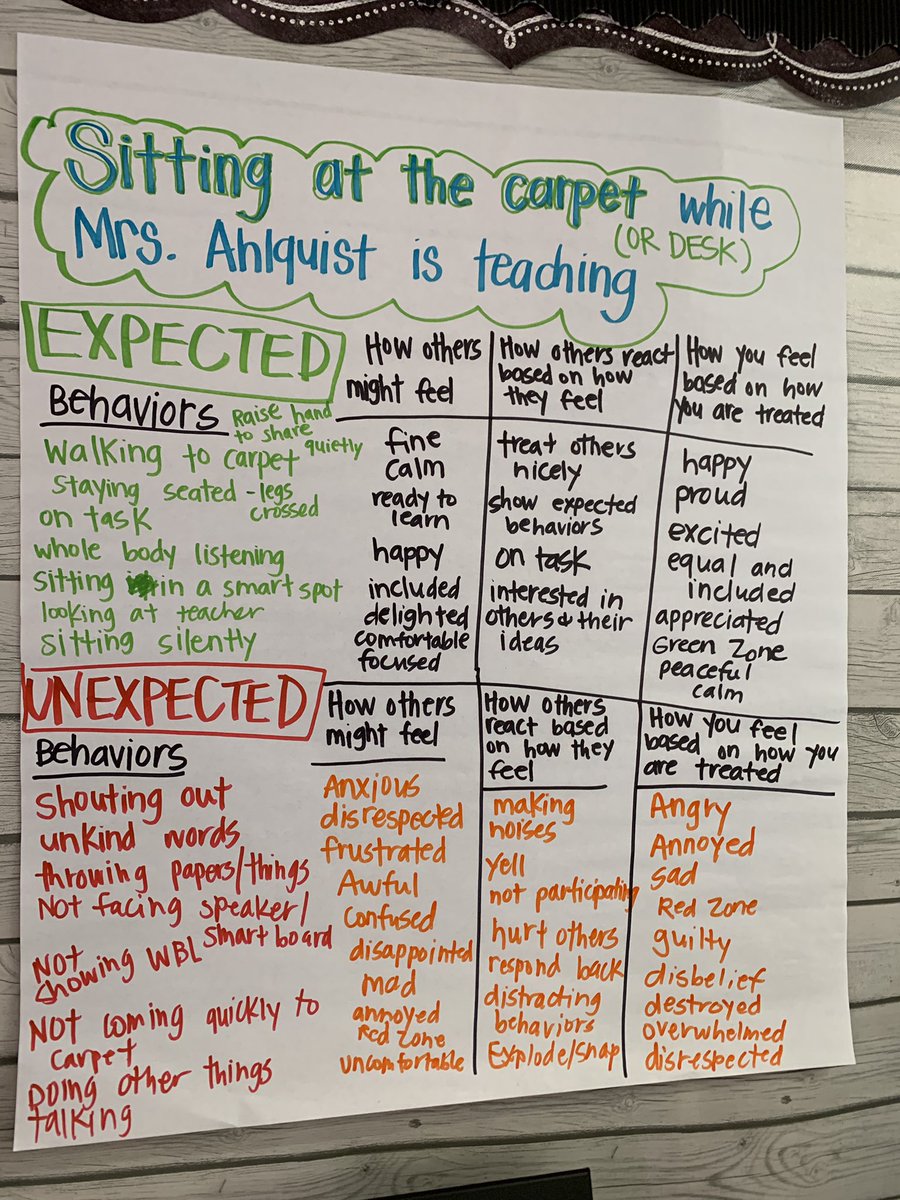 Sitting at the carpet while
(OR DESK)
Mrs. Ahlquist is teaching
EXPECTED
Behaviors
Raise hand
to share
quietly
Walking to carpet
Staying seated - legs
crossed
on task
whole body listening
Sitting in a smart spot
looking at teacher
Sitting silently
How others
might feel
fine
calm
ready to
learn
happy
included
delighted
comfortable
focused
How others react
based on how
they feel
treat others
nicely
show expected
behaviors
on task
interested in
others & their
ideas
How you feel
based on how
you are treated
happy
proud
excited
equal and
included
appreciated
Green Zone
peaceful
calm
UNEXPECTED
Behaviors
Shouting out
unkind words
throwing papers/things
Not facing speaker/
Smart board
Not
showing WBL
Not coming quickly to
carpet
Doing other things
talking
How others
might feel
Anxious
disrespected
frustrated
Awful
Confused
disappointed
mad
annoyed
Red Zone
uncomfortable
How others
react based
on how they
feel
making
noises
yell
not participating
hurt others
respond back
distracting
behaviors
Explode/snap
How you feel
based on how you
are treated
Angry
Annoyed
Sad
Red Zone
guilty
disbelief
destroyed
overwhelmed
disrespected